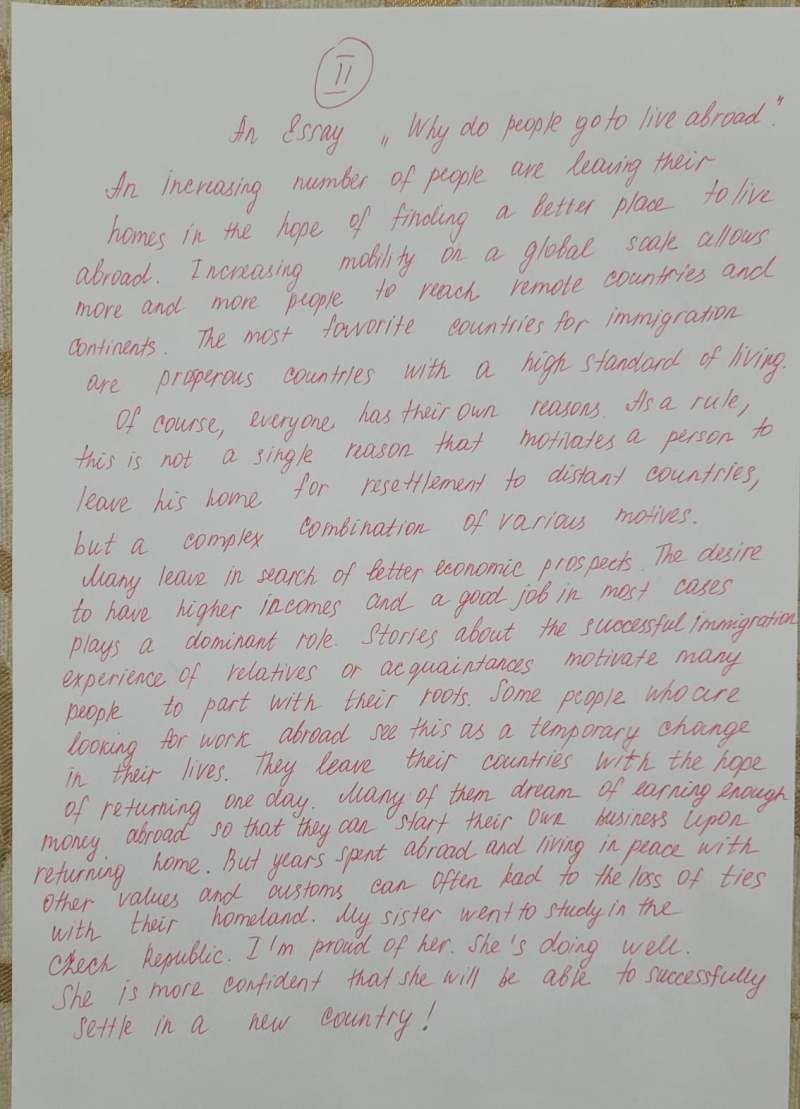 II
An Essay „Why do people go to live abroad".
An increasing number of people are leaving their
homes in the hope of finding a better place to live
abroad. Increasing mobility on a global scale allows
more and more people to reach remote countries and
continents. The most favvorite countries for immigration
are properous countries with a high standard of living.
Of course, everyone has their own reasons. As a rule,
this is not a single reason that motivates a person to
leave his home for resettlement to distant countries,
but a complex combination of various motives.
Many leave in search of better economic prospects. The desire
to have higher incomes and a good job in most cases
plays a dominant role. Stories about the successful immigration
experience of relatives or acquaintances motivate many
people to part with their roots. Some people who are
looking for work abroad see this as a temporary change
in their lives. They leave their countries with the hope
of returning one day. Many of them dream of earning enough
money abroad so that they can start their own business upon
returning home. But years spent abroad and living in peace with
other values and customs can often lead to the loss of ties
with their homeland. My sister went to study in the
Czech Republic. I'm proud of her. She's doing well.
She is more confident that she will be able to successfully
settle in a new country!